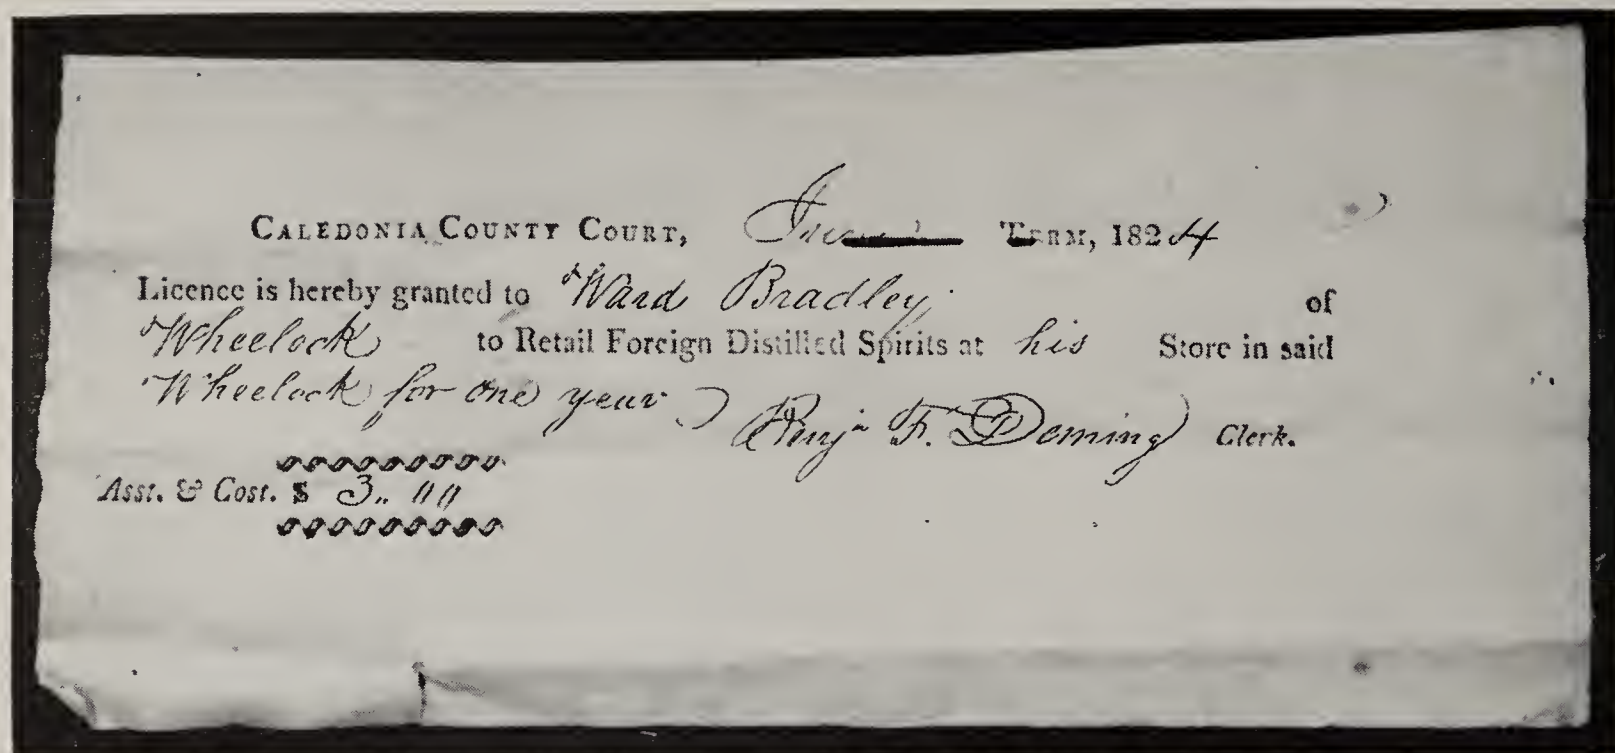 CALEDONIA COUNTY COURT, June TERM, 1824
Licence is hereby granted to Ward Bradley of
Wheelock to Retail Foreign Distilled Spirits at his Store in said
Wheelock for one year
Benjn F. Deming Clerk.
Asst. & Cost. $ 3.. 00